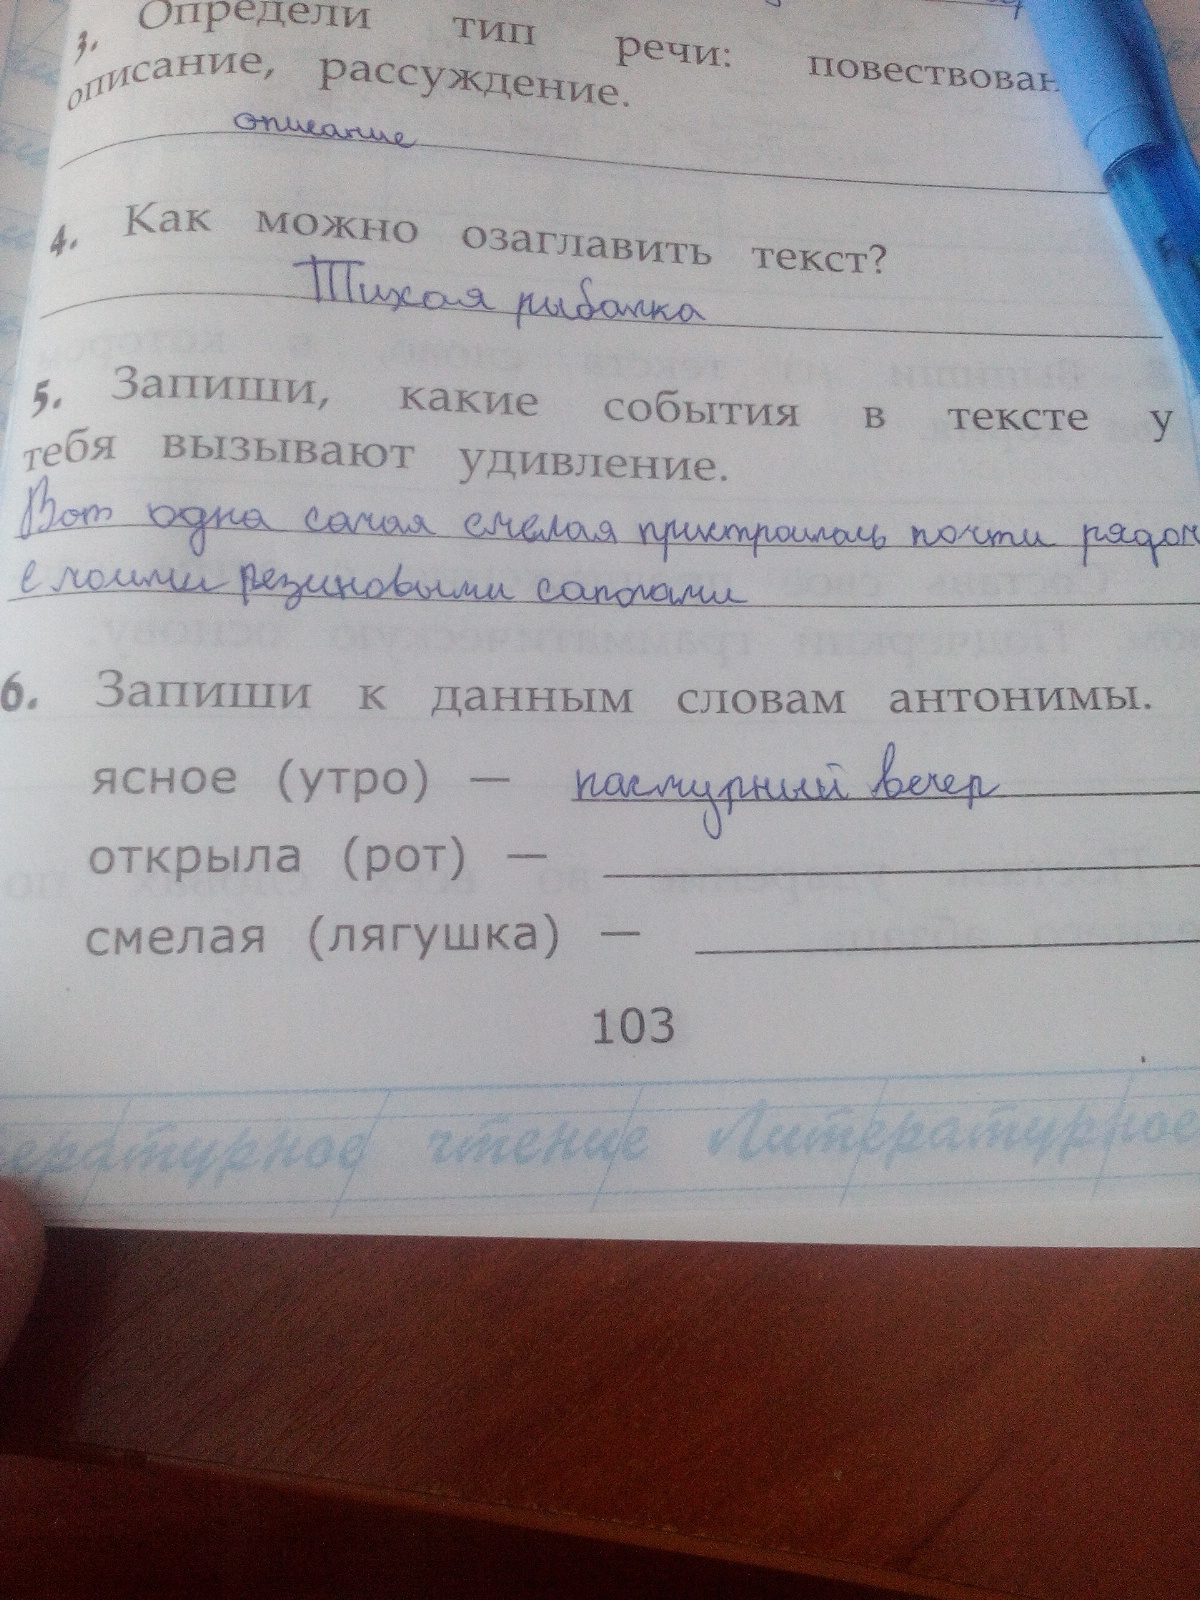 3. Определи тип речи: повествован
описание, рассуждение.
описание
4. Как можно озаглавить текст?
Тихая рыбалка
5. Запиши, какие события в тексте у
тебя вызывают удивление.
Вот одна самая смелая пристроилась почти рядом
с моими резиновыми сапогами
6. Запиши к данным словам антонимы.
ясное (утро) — пасмурный вечер
открыла (рот) —
смелая (лягушка) —
103
ературное чтение Литературное